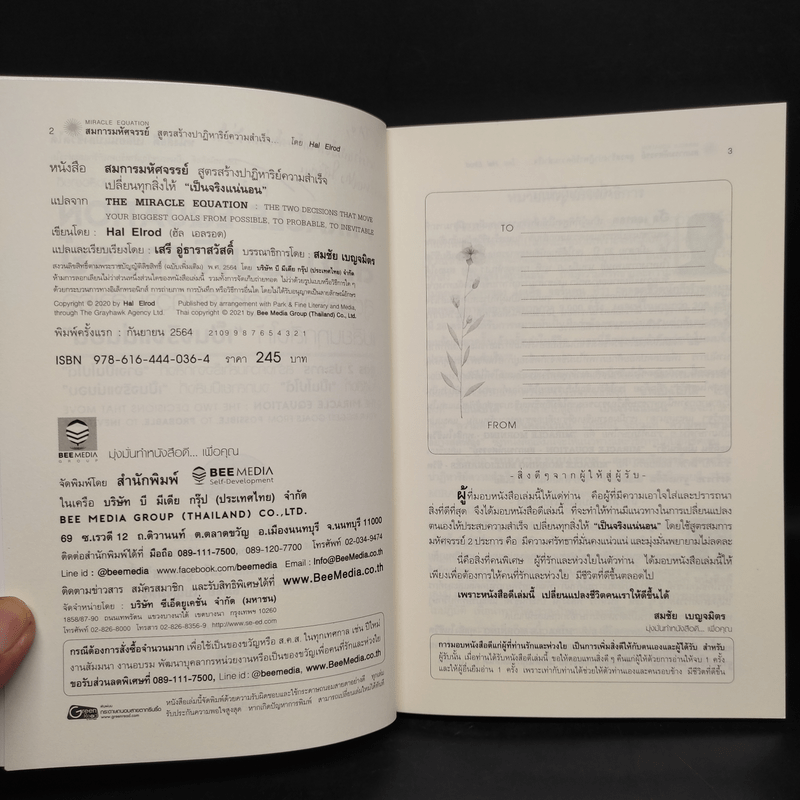 2
MIRACLE EQUATION
สมการมหัศจรรย์ สูตรสร้างปาฏิหาริย์ความสำเร็จ... โดย Hal Elrod
หนังสือ สมการมหัศจรรย์ สูตรสร้างปาฏิหาริย์ความสำเร็จ
เปลี่ยนทุกสิ่งให้ "เป็นจริงแน่นอน"
แปลจาก THE MIRACLE EQUATION : THE TWO DECISIONS THAT MOVE
YOUR BIGGEST GOALS FROM POSSIBLE, TO PROBABLE, TO INEVITABLE
เขียนโดย : Hal Elrod (ฮัล เอลรอด)
แปลและเรียบเรียงโดย : เสรี อู่ธาราสวัสดิ์ บรรณาธิการโดย : สมชัย เบญจมิตร
สงวนลิขสิทธิ์ตามพระราชบัญญัติลิขสิทธิ์ (ฉบับเพิ่มเติม) พ.ศ. 2564 โดย บริษัท บี มีเดีย กรุ๊ป (ประเทศไทย) จำกัด
ห้ามการลอกเลียนไม่ว่าส่วนหนึ่งส่วนใดของหนังสือเล่มนี้ รวมทั้งการจัดเก็บถ่ายทอด ไม่ว่าด้วยรูปแบบหรือวิธีการใด ๆ
ด้วยกระบวนการทางอิเล็กทรอนิกส์ การถ่ายภาพ การบันทึก หรือวิธีการอื่นใด โดยไม่ได้รับอนุญาตเป็นลายลักษณ์อักษร
Copyright © 2020 by Hal Elrod Published by arrangement with Park & Fine Literary and Media,
through The Grayhawk Agency Ltd. Thai copyright © 2021 by Bee Media Group (Thailand) Co., Ltd.
พิมพ์ครั้งแรก : กันยายน 2564 2109 9 8 7 6 5 4 3 2 1
ISBN 978-616-444-036-4 ราคา 245 บาท
BEE MEDIA
GROUP
มุ่งมั่นทำหนังสือดี... เพื่อคุณ
จัดพิมพ์โดย สำนักพิมพ์ BEE MEDIA
Self-Development
ในเครือ บริษัท บี มีเดีย กรุ๊ป (ประเทศไทย) จำกัด
BEE MEDIA GROUP (THAILAND) CO.,LTD.
69 ซ.เรวดี 12 ถ.ติวานนท์ ต.ตลาดขวัญ อ.เมืองนนทบุรี จ.นนทบุรี 11000
ติดต่อสำนักพิมพ์ได้ที่ มือถือ 089-111-7500, 089-120-7700 โทรสาร 02-034-9474
Line id : @beemedia www.facebook.com/beemedia Email : Info@BeeMedia.co.th
ติดตามข่าวสาร สมัครสมาชิก และรับสิทธิพิเศษได้ที่ www.BeeMedia.co.th
จัดจำหน่ายโดย : บริษัท ซีเอ็ดยูเคชั่น จำกัด (มหาชน)
1858/87-90 ถนนเทพรัตน แขวงบางนาใต้ เขตบางนา กรุงเทพฯ 10260
โทรศัพท์ 02-826-8000 โทรสาร 02-826-8356-9 http://www.se-ed.com
กรณีต้องการสั่งซื้อจำนวนมาก เพื่อใช้เป็นของขวัญหรือ ส.ค.ส. ในทุกเทศกาล เช่น ปีใหม่
งานสัมมนา งานอบรม พัฒนาบุคลากรหน่วยงานหรือเป็นของขวัญเพื่อคนที่รักและห่วงใย
ขอรับส่วนลดพิเศษที่ 089-111-7500, Line id : @beemedia, www.BeeMedia.co.th
Green Read
กระดาษถนอมสายตากรีนรี้ด
www.greenread.com
หนังสือเล่มนี้จัดพิมพ์ด้วยความรับผิดชอบและใช้กระดาษถนอมสายตาอย่างดี ทุกเล่ม
รับประกันความพอใจสูงสุด หากเกิดปัญหาการพิมพ์ สามารถเปลี่ยนเล่มใหม่ได้ทันที
3
TO
FROM
-สิ่งดีๆจากผู้ให้สู่ผู้รับ-
ผู้ที่มอบหนังสือเล่มนี้ให้แด่ท่าน คือผู้ที่มีความเอาใจใส่และปรารถนา
สิ่งที่ดีที่สุด จึงได้มอบหนังสือเล่มนี้ ที่จะทำให้ท่านมีแนวทางในการเปลี่ยนแปลง
ตนเองให้ประสบความสำเร็จ เปลี่ยนทุกสิ่งให้ "เป็นจริงแน่นอน" โดยใช้สูตรสมการ
มหัศจรรย์ 2 ประการ คือ มีความศรัทธาที่มั่นคงแน่วแน่ และมุ่งมั่นพยายามไม่ลดละ
นี่คือสิ่งที่คนพิเศษ ผู้ที่รักและห่วงใยในตัวท่าน ได้มอบหนังสือเล่มนี้ให้
เพียงเพื่อต้องการให้คนที่รักและห่วงใย มีชีวิตที่ดีขึ้นตลอดไป
เพราะหนังสือดีเล่มนี้ เปลี่ยนแปลงชีวิตคนเราให้ดีขึ้นได้
สมชัย เบญจมิตร
มุ่งมั่นทำหนังสือดี... เพื่อคุณ
การมอบหนังสือดีแก่ผู้ที่ท่านรักและห่วงใย เป็นการเพิ่มสิ่งดีให้กับตนเองและผู้ได้รับ สำหรับ
ผู้รับนั้น เมื่อท่านได้รับหนังสือเล่มนี้ ขอให้ตอบแทนสิ่งดี ๆ คืนแก่ผู้ให้ด้วยการอ่านให้จบ 1 ครั้ง
และให้ผู้อื่นยืมอ่าน 1 ครั้ง เพราะเท่ากับท่านได้ช่วยให้ตัวท่านเองและคนรอบข้าง มีชีวิตที่ดีขึ้น